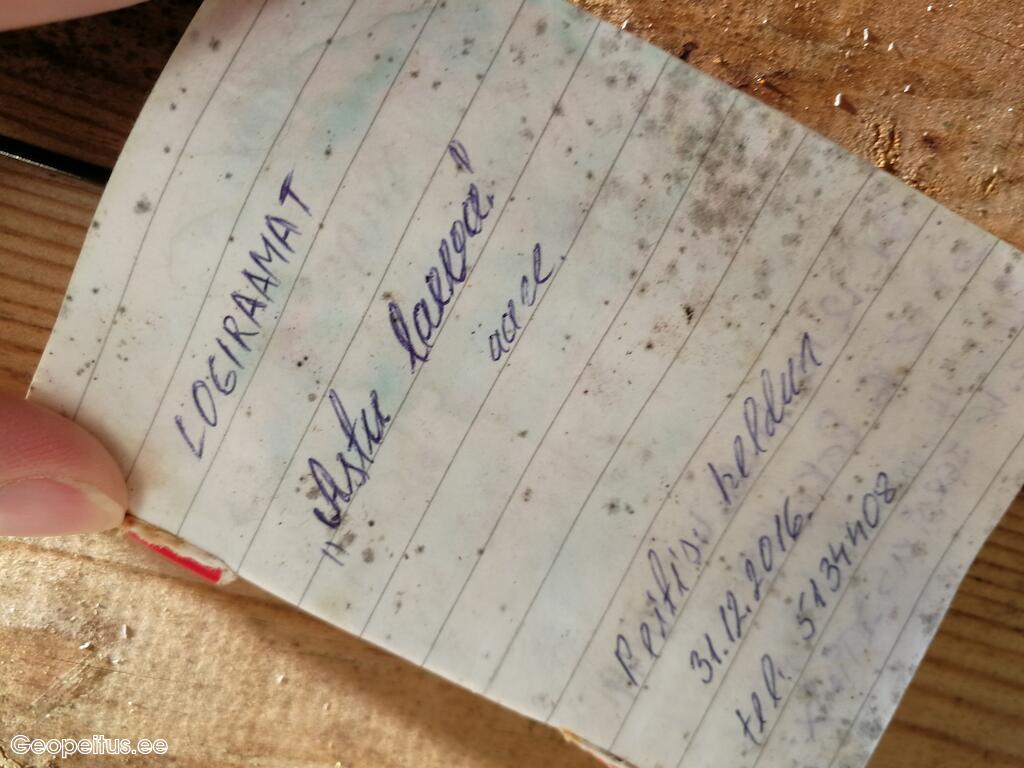 LOGIRAAMAT
"Astu laeva!"
aare
Peitis: heldur
31.12.2016.
tel. 5134408
Geopeitus.ee